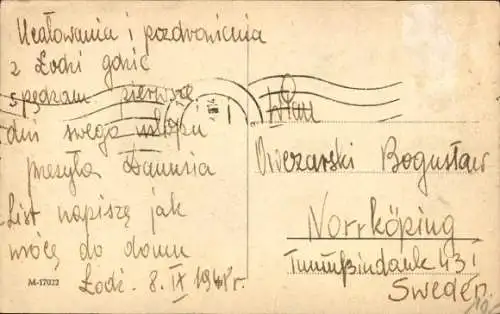 Ucałowania i pozdrowienia
z Łodzi gdzie
spędzam pierwsze
dni swego urlopu
przesyła Danusia
List napiszę jak
wrócę do domu
Łódź. 8. IX 1948 r.
M-17022
W Pan
Bogusław
Norrköping
431
Sweden